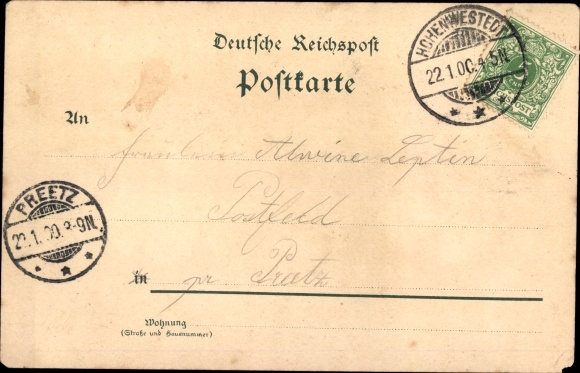 Deutsche Reichspost
Postkarte
HOHENWESTEDT
22.1.00.4-5N.
An
Fräulein Alwine Leptin
Postfeld
PREETZ
22.1.00.8-9N.
in pr Preetz
Wohnung
(Straße und Hausnummer)